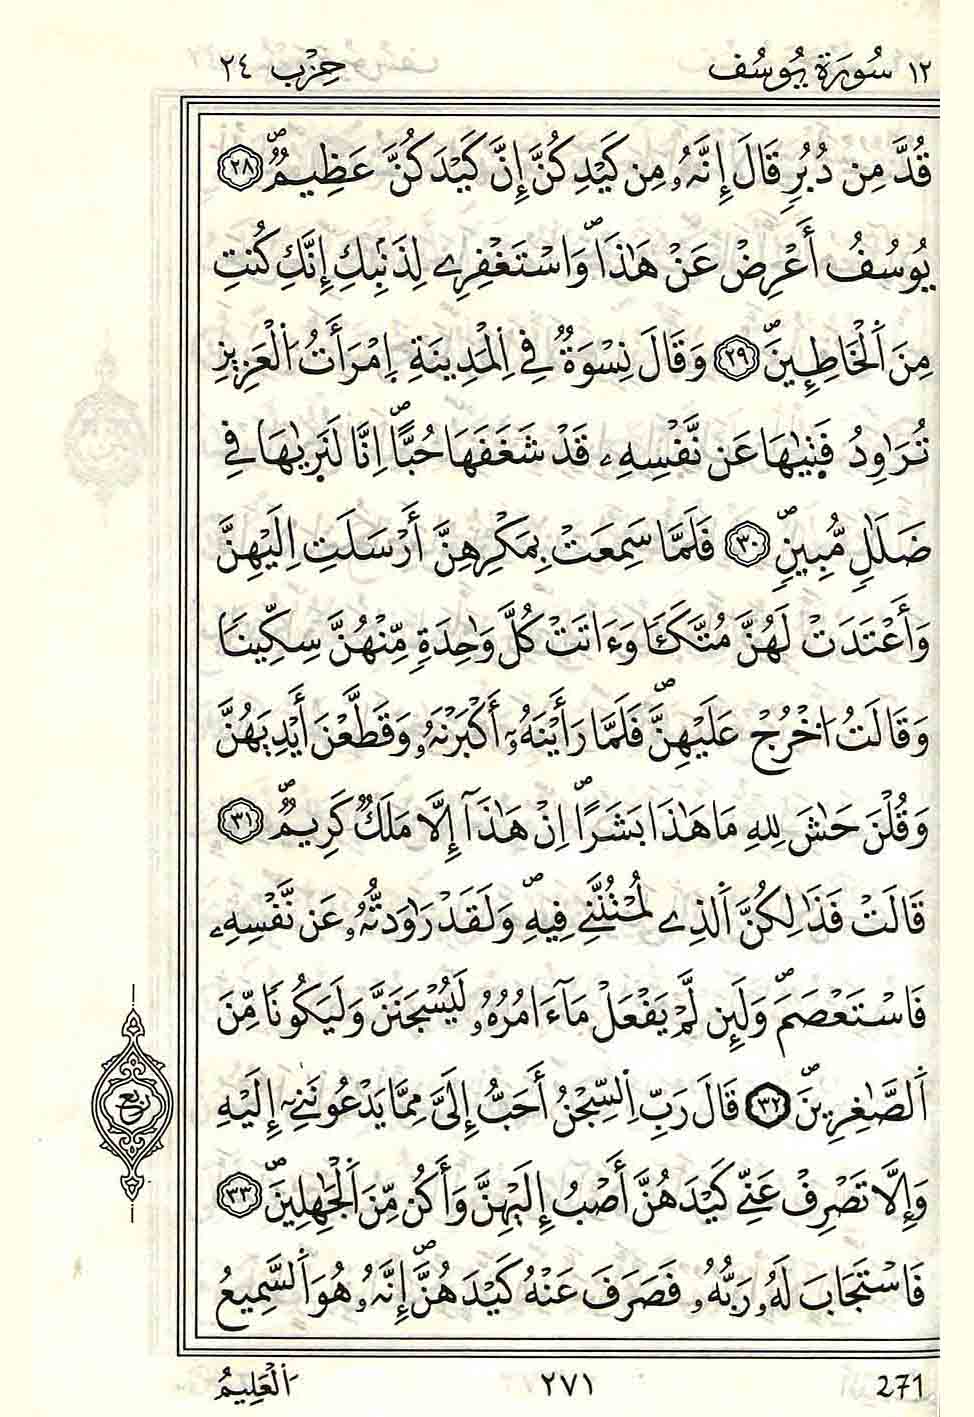 ١٢ سُورَةُ يُوسُف حِزْب ٢٤
قُدَّ مِن دُبُرٍ قَالَ إِنَّهُۥ مِن كَيْدِكُنَّ إِنَّ كَيْدَكُنَّ عَظِيمٌۖ ٢٨
يُوسُفُ أَعْرِضْ عَنْ هَٰذَاۖ وَاسْتَغْفِرِے لِذَنۢبِكِ إِنَّكِ كُنتِ
مِنَ اَ۬لْخَاطِـِٕينَۖ ٢٩ وَقَالَ نِسْوَةٌ فِے اِ۬لْمَدِينَةِ اِ۪مْرَأَتُ اُ۬لْعَزِيزِ
تُرَٰوِدُ فَتَيٰهَا عَن نَّفْسِهِۦ قَدْ شَغَفَهَا حُبّاًۖ اِنَّا لَنَر۪يٰهَا فِے
ضَلَٰلٍ مُّبِينٍۖ ٣٠ فَلَمَّا سَمِعَتْ بِمَكْرِهِنَّ أَرْسَلَتِ اِلَيْهِنَّ
وَأَعْتَدَتْ لَهُنَّ مُتَّكَـٔاً وَءَاتَتْ كُلَّ وَٰحِدَةٍ مِّنْهُنَّ سِكِّيناً
وَقَالَتُ اُ۟خْرُجْ عَلَيْهِنَّۖ فَلَمَّا رَأَيْنَهُۥٓ أَكْبَرْنَهُۥ وَقَطَّعْنَ أَيْدِيَهُنَّ
وَقُلْنَ حَٰشَ لِلهِ مَا هَٰذَا بَشَراًۖ اِنْ هَٰذَآ إِلَّا مَلَكٌ كَرِيمٌۖ ٣١
قَالَتْ فَذَٰلِكُنَّ اَ۬لذِے لُمْتُنَّنِے فِيهِۖ وَلَقَدْ رَٰوَدتُّهُۥ عَن نَّفْسِهِۦ
فَاسْتَعْصَمَۖ وَلَئِن لَّمْ يَفْعَلْ مَآ ءَامُرُهُۥ لَيُسْجَنَنَّ وَلَيَكُوناً مِّنَ
اَ۬لصَّٰغِرِينَۖ ٣٢ قَالَ رَبِّ اِ۬لسِّجْنُ أَحَبُّ إِلَىَّ مِمَّا يَدْعُونَنِےٓ إِلَيْهِ
وَإِلَّا تَصْرِفْ عَنِّے كَيْدَهُنَّ أَصْبُ إِلَيْهِنَّ وَأَكُن مِّنَ اَ۬لْجَٰهِلِينَۖ ٣٣
فَاسْتَجَابَ لَهُۥ رَبُّهُۥ فَصَرَفَ عَنْهُ كَيْدَهُنَّۖ إِنَّهُۥ هُوَ اَ۬لسَّمِيعُ
ربع
271 ٢٧١ اَ۬لْعَلِيمُ